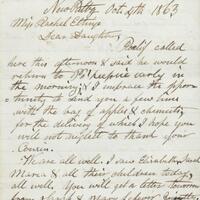 New Paltz Oct. 4th 1863
Miss Rachel Eltinge
Dear Daughter,
called
here this afternoon & said he would
return to Po'keepsie early in
the morning; I embrace the oppor-
tunity to send you a few lines
with the bag of apples & chesnuts,
for the delivery of which I hope you
will not neglect to thank your
Cousin.
We are all well. I saw Elizabeth,
Maria & all their children today
all well. You will get a letter tomorrow
from